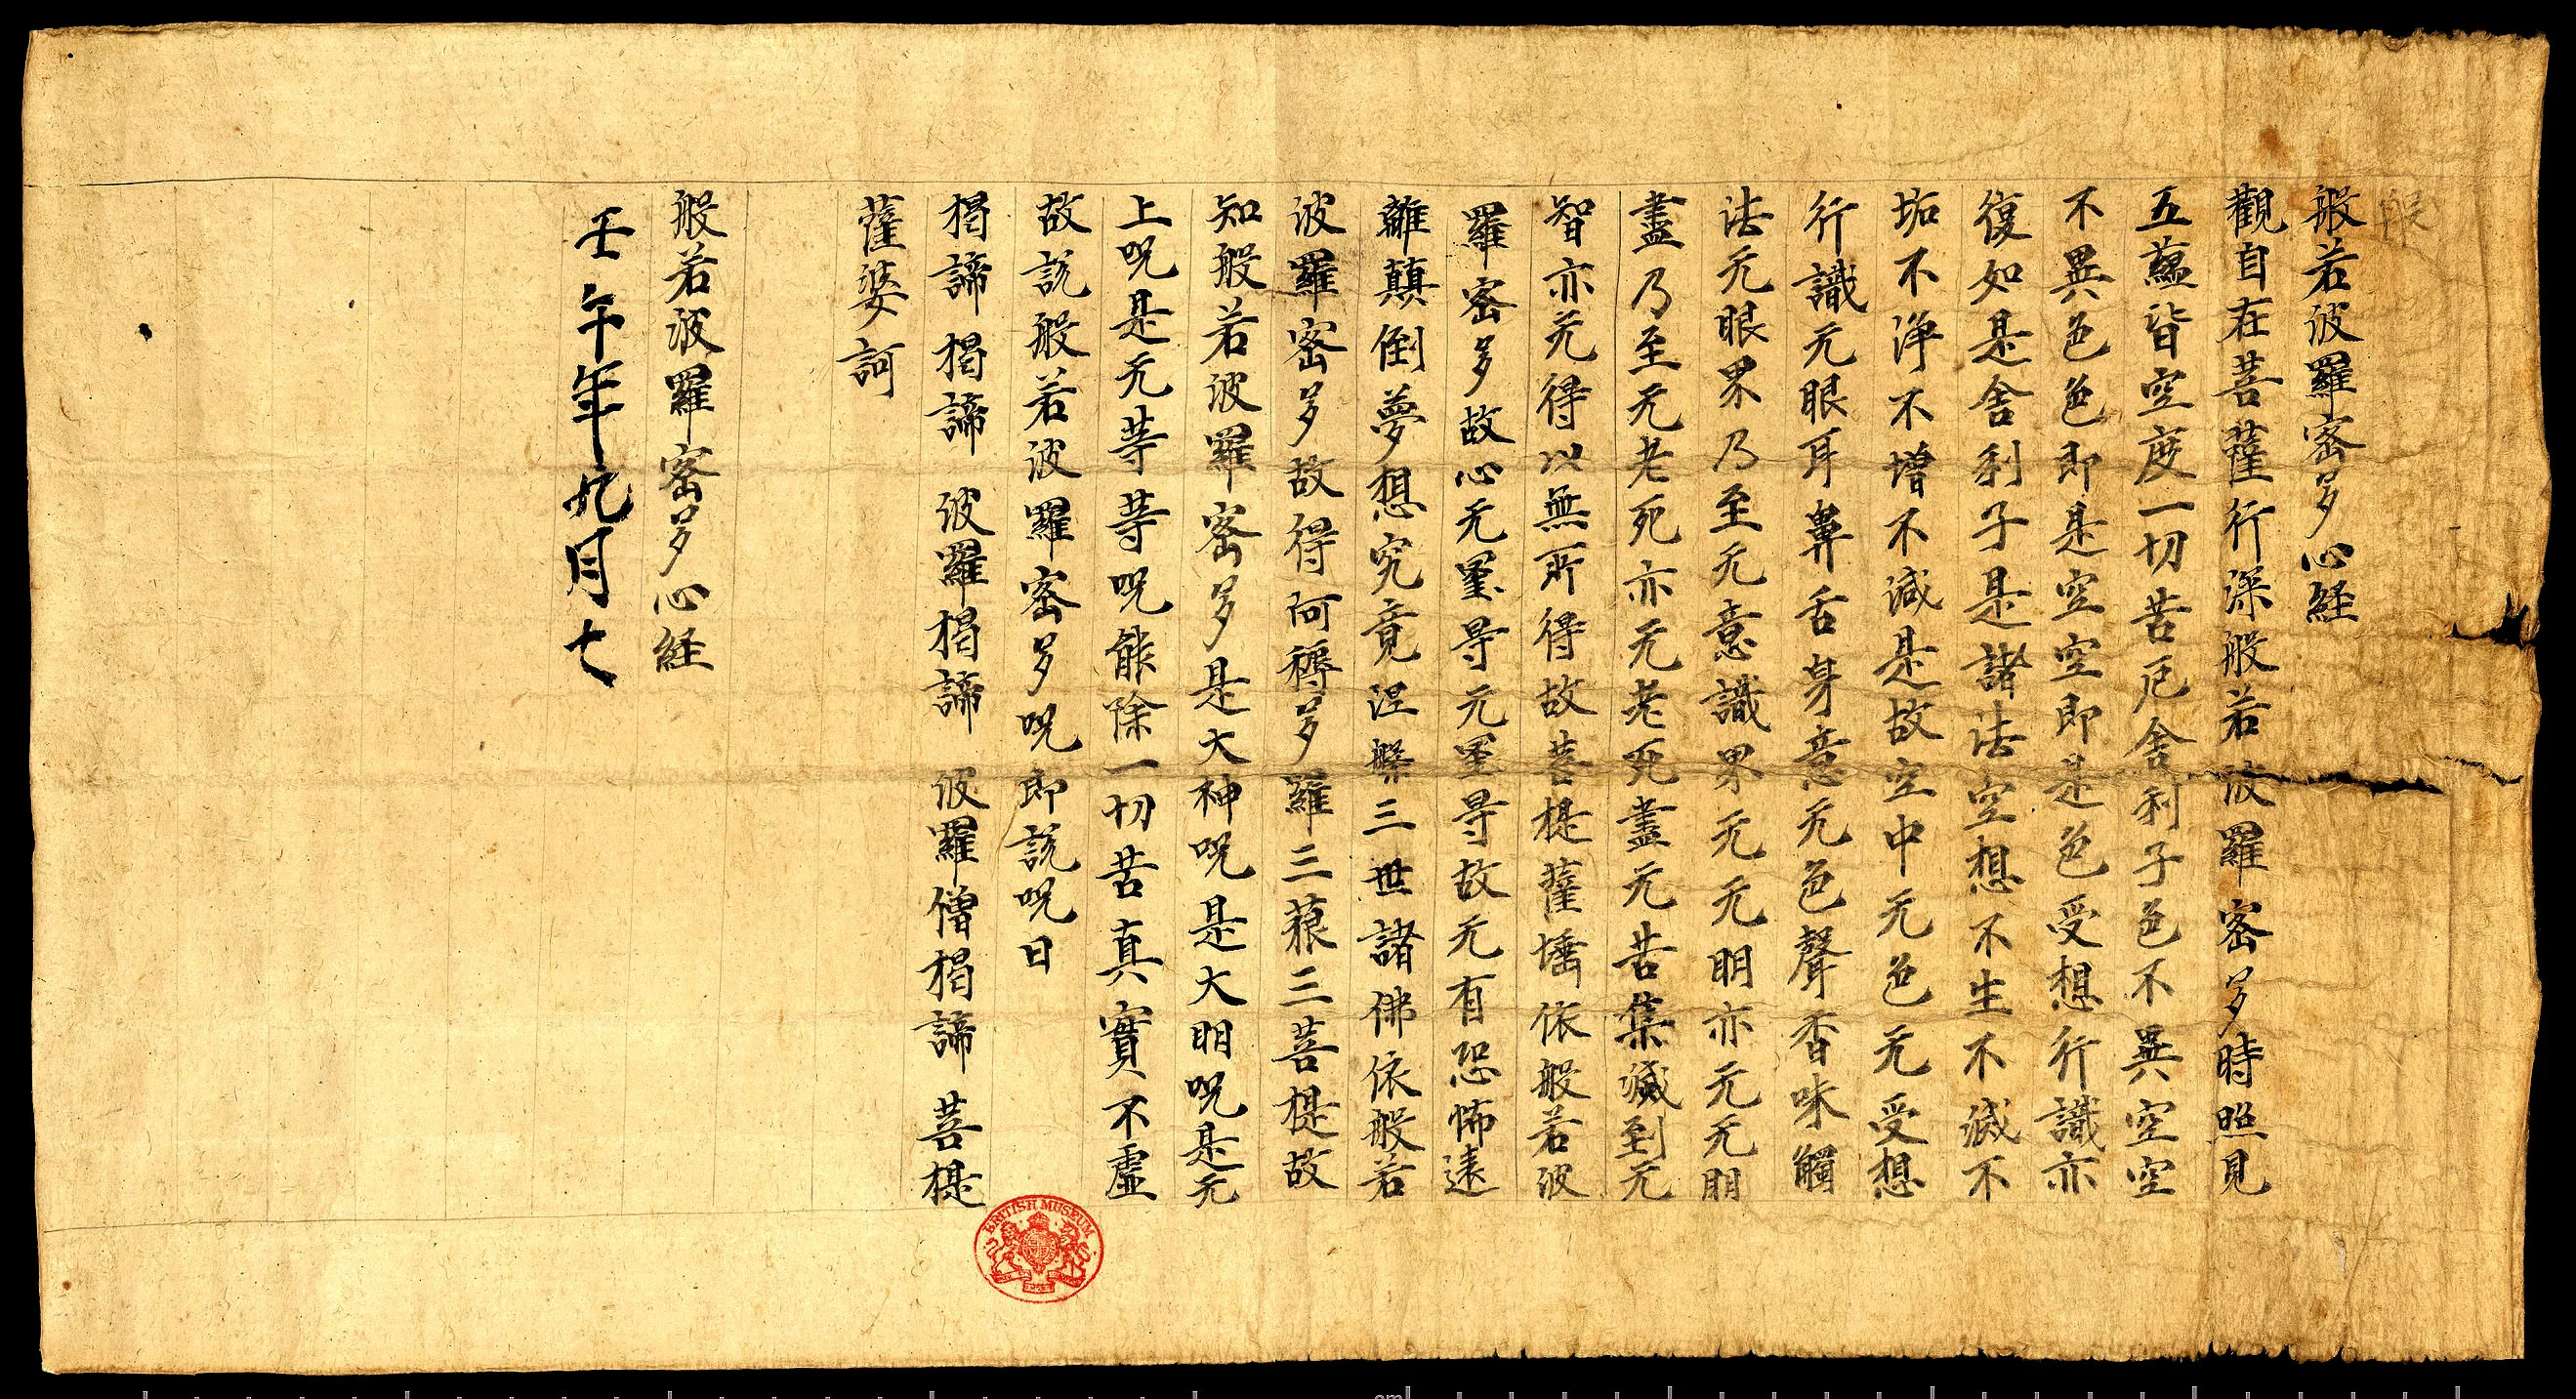 般
般若波羅蜜多心経
觀自在菩薩行深般若波羅蜜多時照見
五蘊皆空度一切苦厄舍利子色不異空空
不異色色即是空空即是色受想行識亦
復如是舍利子是諸法空想不生不滅不
垢不淨不增不減是故空中无色无受想
行識无眼耳鼻舌身意无色聲香味觸
法无眼界乃至无意識界无无明亦无无明
盡乃至无老死亦无老死盡无苦集滅到无
智亦无得以無所得故菩提薩埵依般若波
羅蜜多故心无罣㝵无罣㝵故无有恐怖遠
離顛倒夢想究竟涅槃三世諸佛依般若
波羅蜜多故得阿耨多羅三藐三菩提故
知般若波羅蜜多是大神呪是大明呪是无
上呪是无等等呪能除一切苦真實不虛
故說般若波羅蜜多呪即說呪曰
揭諦揭諦 波羅揭諦 波羅僧揭諦 菩提
薩婆訶
般若波羅蜜多心経
壬午年九月七
BRITISH MUSEUM
cm